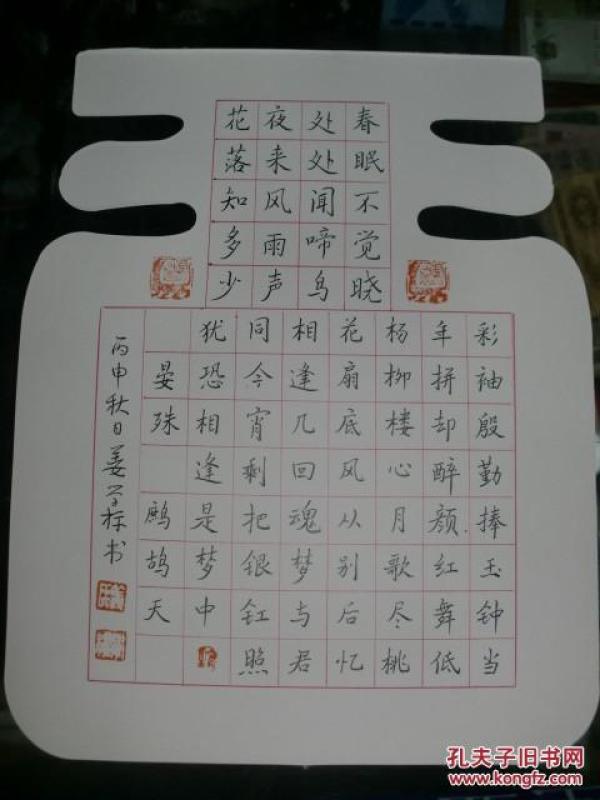 春眠不觉晓
处处闻啼鸟
夜来风雨声
花落知多少
彩袖殷勤捧玉钟当
年拼却醉颜红舞低
杨柳楼心月歌尽桃
花扇底风从别后忆
相逢几回魂梦与君
同今宵剩把银釭照
犹恐相逢是梦中
晏殊 鹧鸪天
丙申秋日姜学标书
孔夫子旧书网
www.kongfz.com